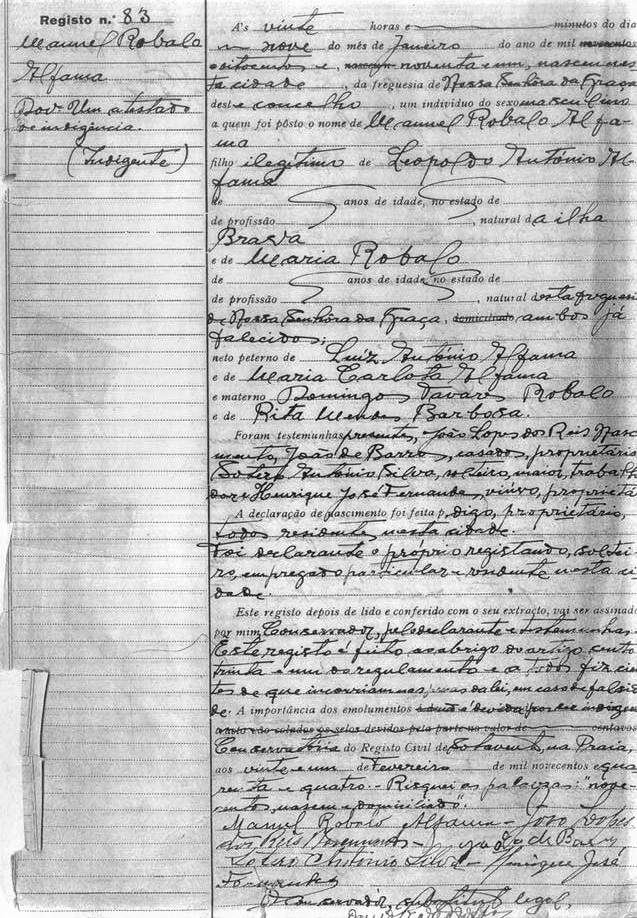 Registo n.º 83
Manuel Robalo
Alfama
Dov. Um atestado
de indigência.
(Indigente)
A's vinte horas e minutos do dia
nove do mês de Janeiro do ano de mil novecentos
oitocentos e noventa e um, nasceu nes
ta cidade, da freguesia de Nossa Senhora da Graça
deste concelho, um indivíduo do sexo masculino
a quem foi pôsto o nome de Manuel Robalo Alfa-
ma
filho ilegítimo de Leopoldo António Al
fama
de anos de idade, no estado de
de profissão , natural da ilha
Brava
e de Maria Robalo
de anos de idade, no estado de
de profissão , natural desta freguesi
de Nossa Senhora da Graça, domiciliado ambos já
falecidos;
neto paterno de Luiz António Alfama
e de Maria Carlota Alfama
e materno Domingos Tavares Robalo
e de Rita Mendes Barbosa.
Foram testemunhas presentes, João Lopes dos Reis Nasc
mento, João de Barros, casados, proprietário
Sotero António Silva, solteiro, maior, trabalh
dor e Henrique José Fernandes, viúvo, propriet
A declaração de nascimento foi feita p. digo, proprietário,
todos residentes nesta cidade.
Foi declarante o próprio registando, soltei
ro, empregado particular e residente nesta ci
dade.
Este registo depois de lido e conferido com o seu extracto, vai ser assinado
por mim, Conservador, pelo declarante e testemunhas.
Este registo é feito ao abrigo do artigo cento
trinta e um do regulamento e a todos fiz cien
tes de que incorriam nas penas da lei, em caso de falsid
de. A importância dos emolumentos
Conservatória do Registo Civil de Sotavento, na Praia,
aos vinte e um de Fevereiro de mil novecentos e qua
renta e quatro. Risquei as palavras: "nove-
centos, nascem e domiciliado".
Manuel Robalo Alfama - João Lopes
dos Reis Nascimento - João de Barros
Sotero António Silva - Henrique José
Fernandes
O Conservador, substituto legal,